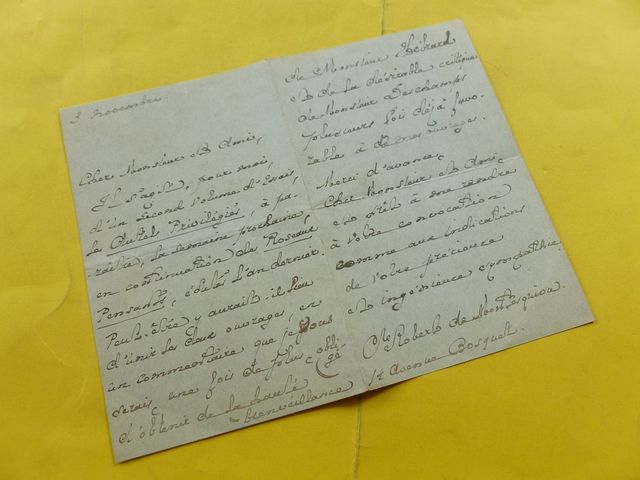 3 Novembre
Cher Monsieur et Ami,
Il s'agit, pour moi,
d'un second volume d'Essais,
les Autels Privilégiés, à pa-
raître, la semaine prochaine,
en continuation des Roseaux
Pensants, édités l'an dernier.
Peut-être y aurait-il lieu
d'unir les deux ouvrages, en
un commentaire que je vous
derais, une fois de plus, obligé
d'obtenir de la haute
bienveillance
de Monsieur Hébrard
et de la désirable critique
de Monsieur Deschamps
plusieurs fois déjà favo-
rable à de mes ouvrages.
Merci d'avance,
Cher Monsieur et Ami
et prêt à me rendre
à votre convocation
comme aux indications
de votre précieuse
et ingénieuse sympathie.
Cte Robert de Montesquiou.
Avenue Bosquet.